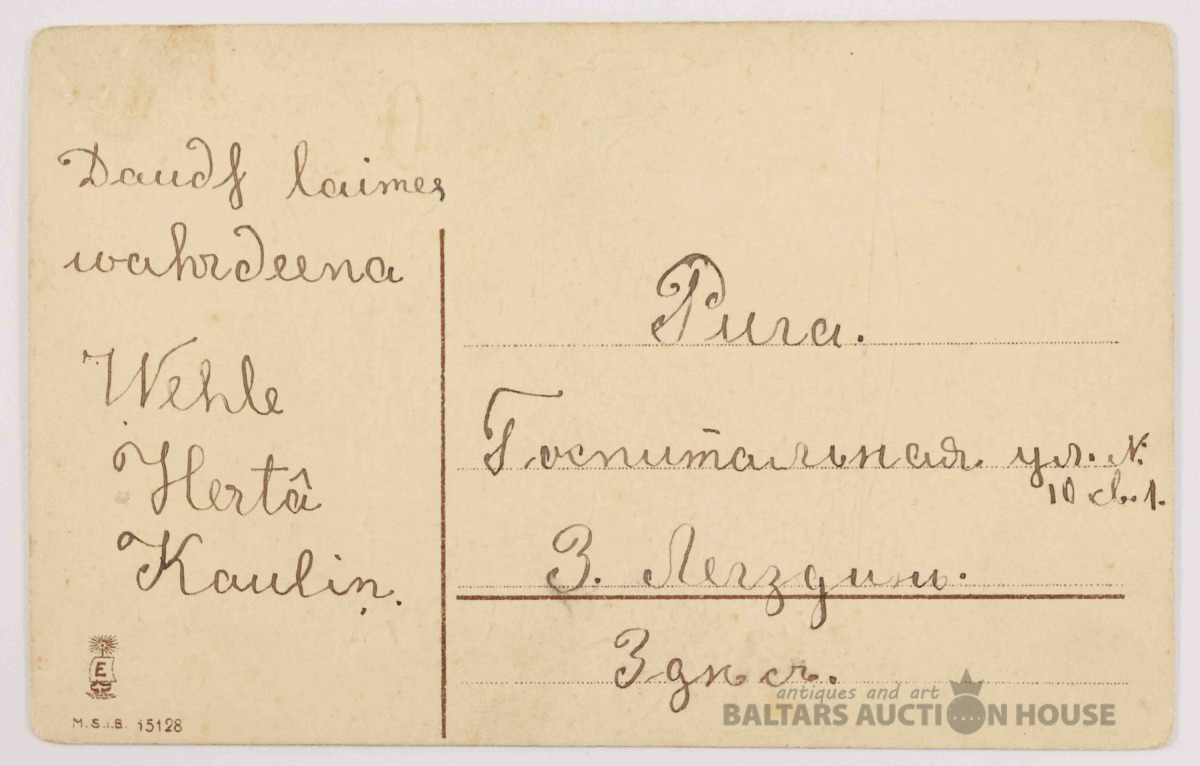 Daudſ laimes
wahrdeena
Wehle
Herta
Kauliņ.
E
M.S.i.B. 15128
Рига.
Госпитальная ул. N.
10 кв. 1.
З. Легздинь.
Здѣсь.
antiques and art
BALTARS AUCTION HOUSE